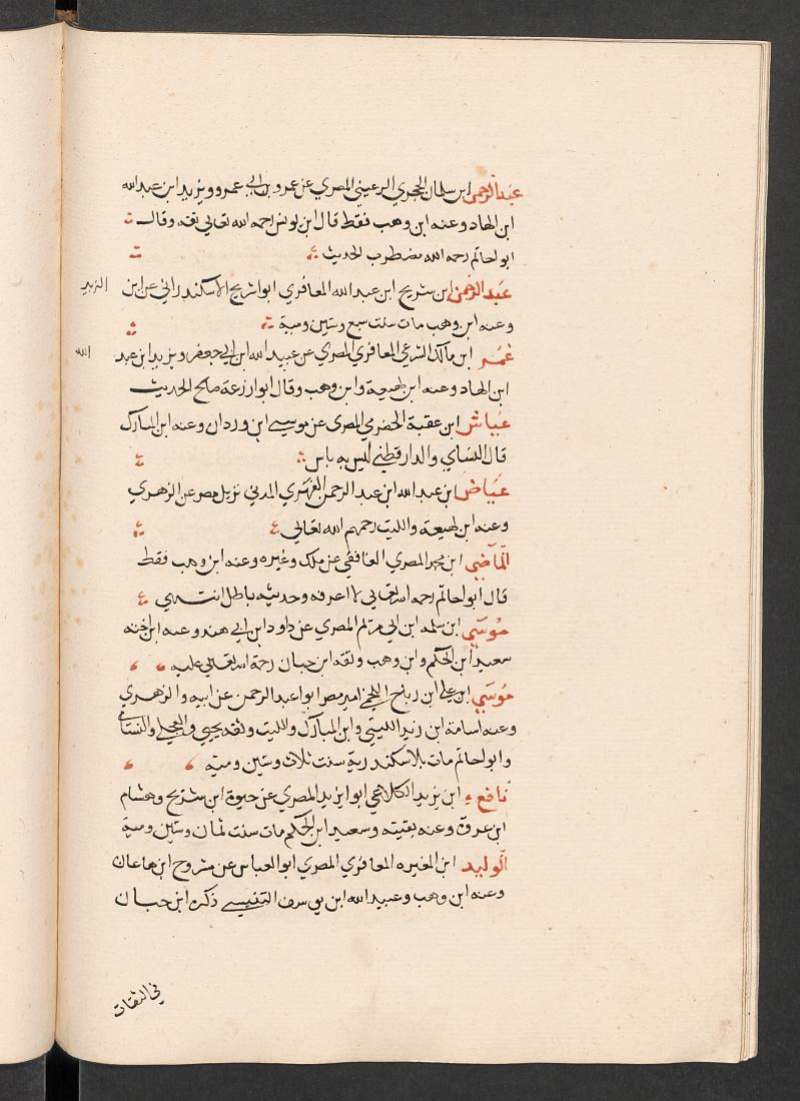 عبد الرحمن ابن سلمان الحجري الرعيني المصري عن عمرو بن ابي عمرو ويزيد ابن عبد الله
ابن الهاد وعنه ابن وهب فقط قال ابن يونس رحمه الله تعالي ثقه وقال
ابو احاتم رحمه الله مضطرب الحديث
عبد الرحمن ابن شريح ابن عبد الله المعافري ابوا شريح الاسكندراني عن ابن الزبير
وعنه ابن وهب مات سنت سبع وستين ومية
عمر ابن مالك الشرعبي المعافري المصري عن عبيد الله ابن ابي جعفر ويزيد ابن عبد الله
ابن الهاد وعنه ابن لهيعة وابن وهب وقال ابوا زرعة صالح الحديث
عياش ابن عقبة الحضرمي المصري عن موسي ابن وردان وعنه ابن المبارك
قال النساي والدارقطني ليس به باس
عياض ابن عبد الله ابن عبد الرحمن الفهري المدني نزيل مصر عن الزهري
وعنه ابن لهيعة والليت رحمهم الله تعالي
الماضي ابن محمد المصري الغافقي عن ملك وغيره وعنه ابن وهب فقط
قال ابوا حاتم رحمه الله تعالي لا اعرفه وحديثه باطل انتهي
موسي ابن سلمه ابن ابي مريم المصري عن داود ابن ابي هند وعنه ابن اخته
سعيد ابن الحكم وابن وهب وثقه ابن حبان رحمة الله تعالي عليه
موسي ابن علي ابن رباح اللخمي امير مصر ابوا عبد الرحمن عن ابيه والزهري
وعنه اسامة ابن زيد الليتي وابن المبارك والليت وثقه يحيي والعجلي والنسائي
وابو احاتم مات بلاسكندرية سنت ثلاث وستين ومية
نافع ابن يزيد الكلاعي ابوا يزيد المصري عن حيوة ابن شريح وهشام
ابن عروة وعنه بقيته وسعيد ابن الحكم مات سنت ثمان وستين ومية
الوليد ابن المغيره المعافري المصري ابوا العباس عن مشرح ابن هاعان
وعنه ابن وهب وعبيد الله ابن يوسف التنيسي ذكره ابن حبان
في الثقات